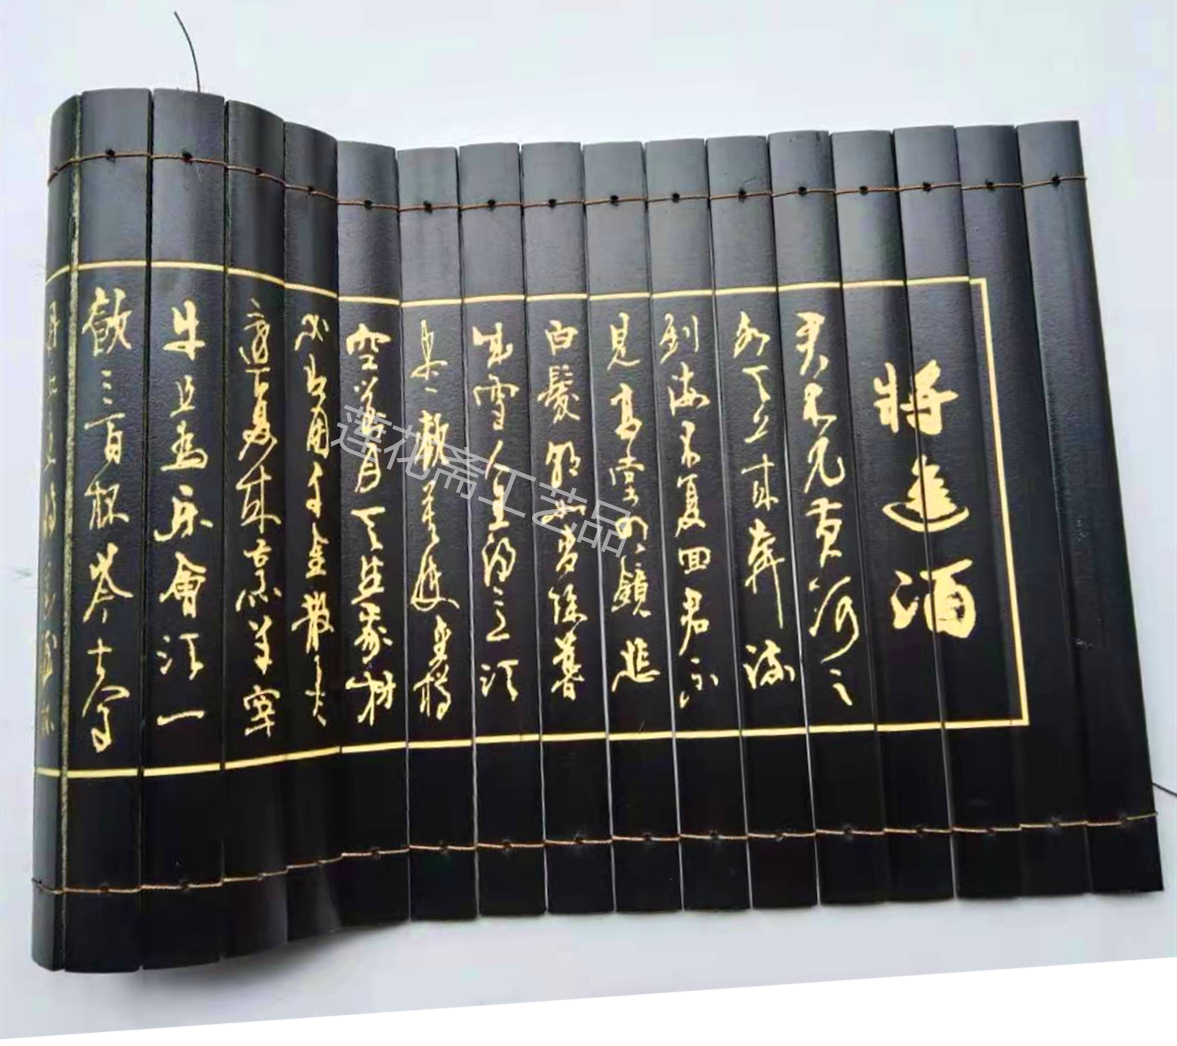 將進酒
君不見黄河之
水天上来奔流
到海不复回君不
見高堂明鏡悲
白髮朝如青絲暮
成雪人生得意须
尽歡莫使金樽
空對月天生我材
必有用千金散尽
還复来烹羊宰
牛且为乐會须一
飲三百杯岑夫子
丹丘生
莲花斋工艺品